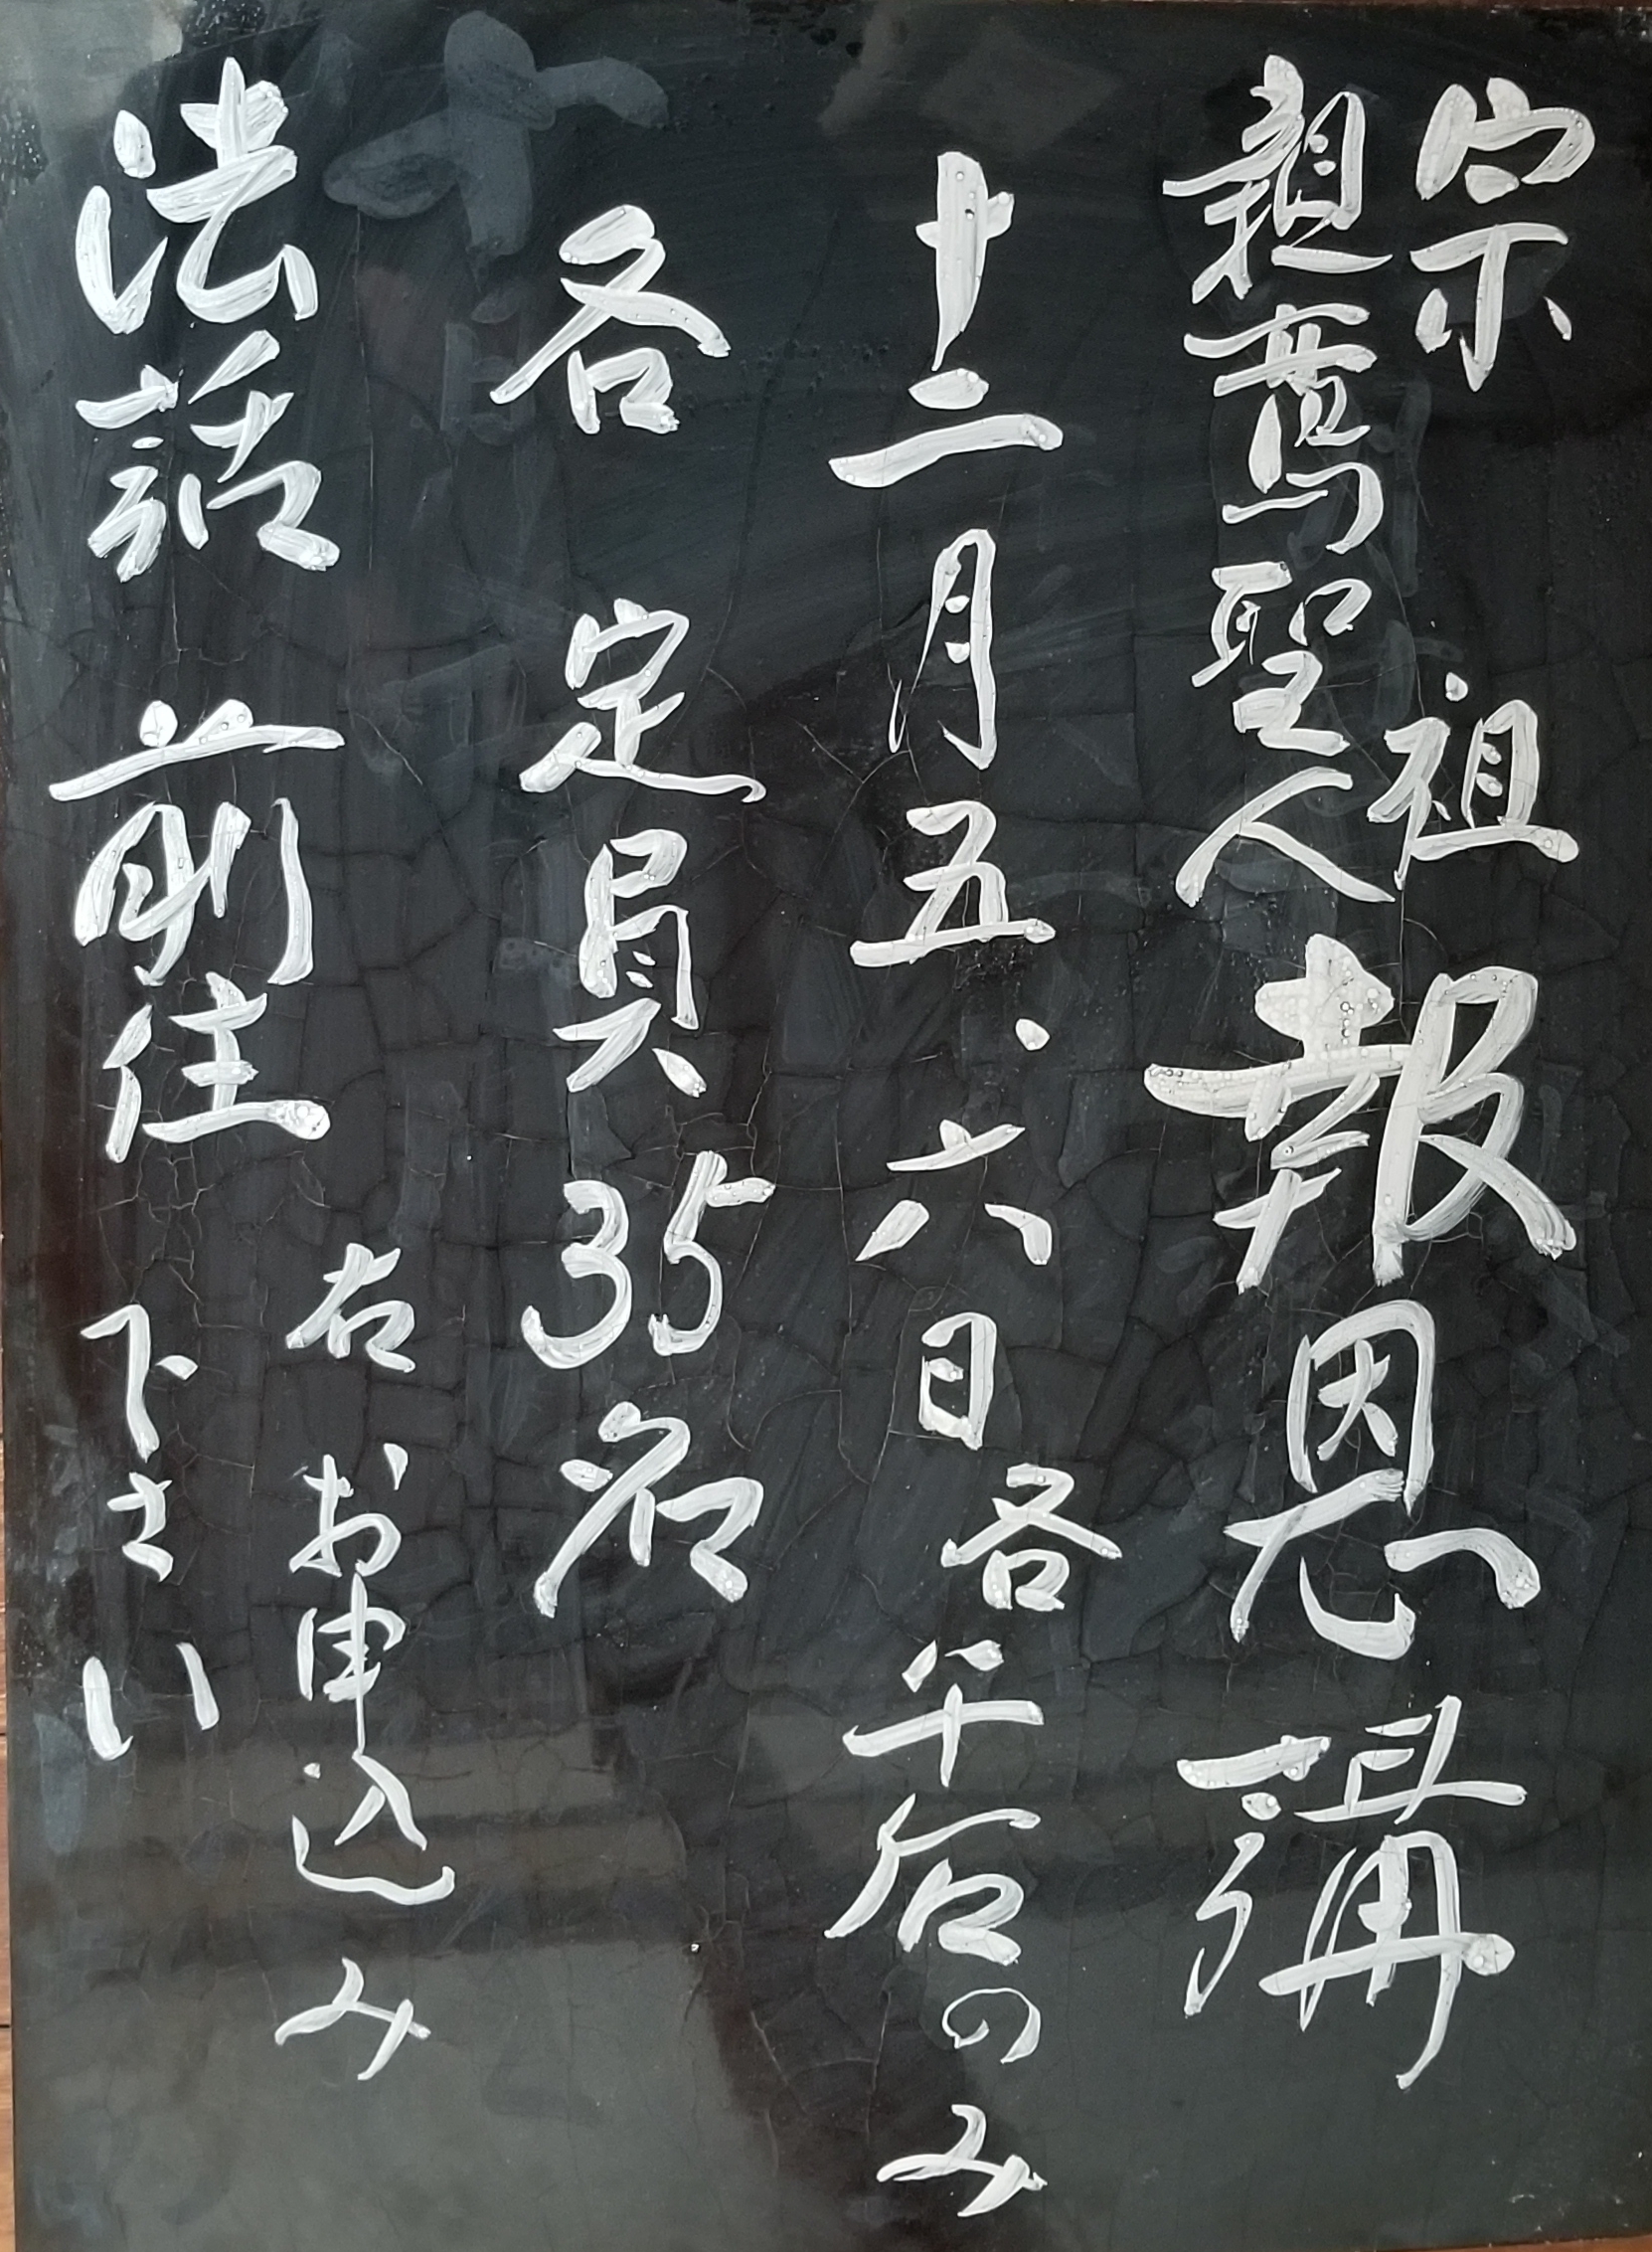 宗祖
親鸞聖人
報恩講
十二月五、六日
各午后のみ
各 定員 35名
右 お申込み
下さい
法話 前住